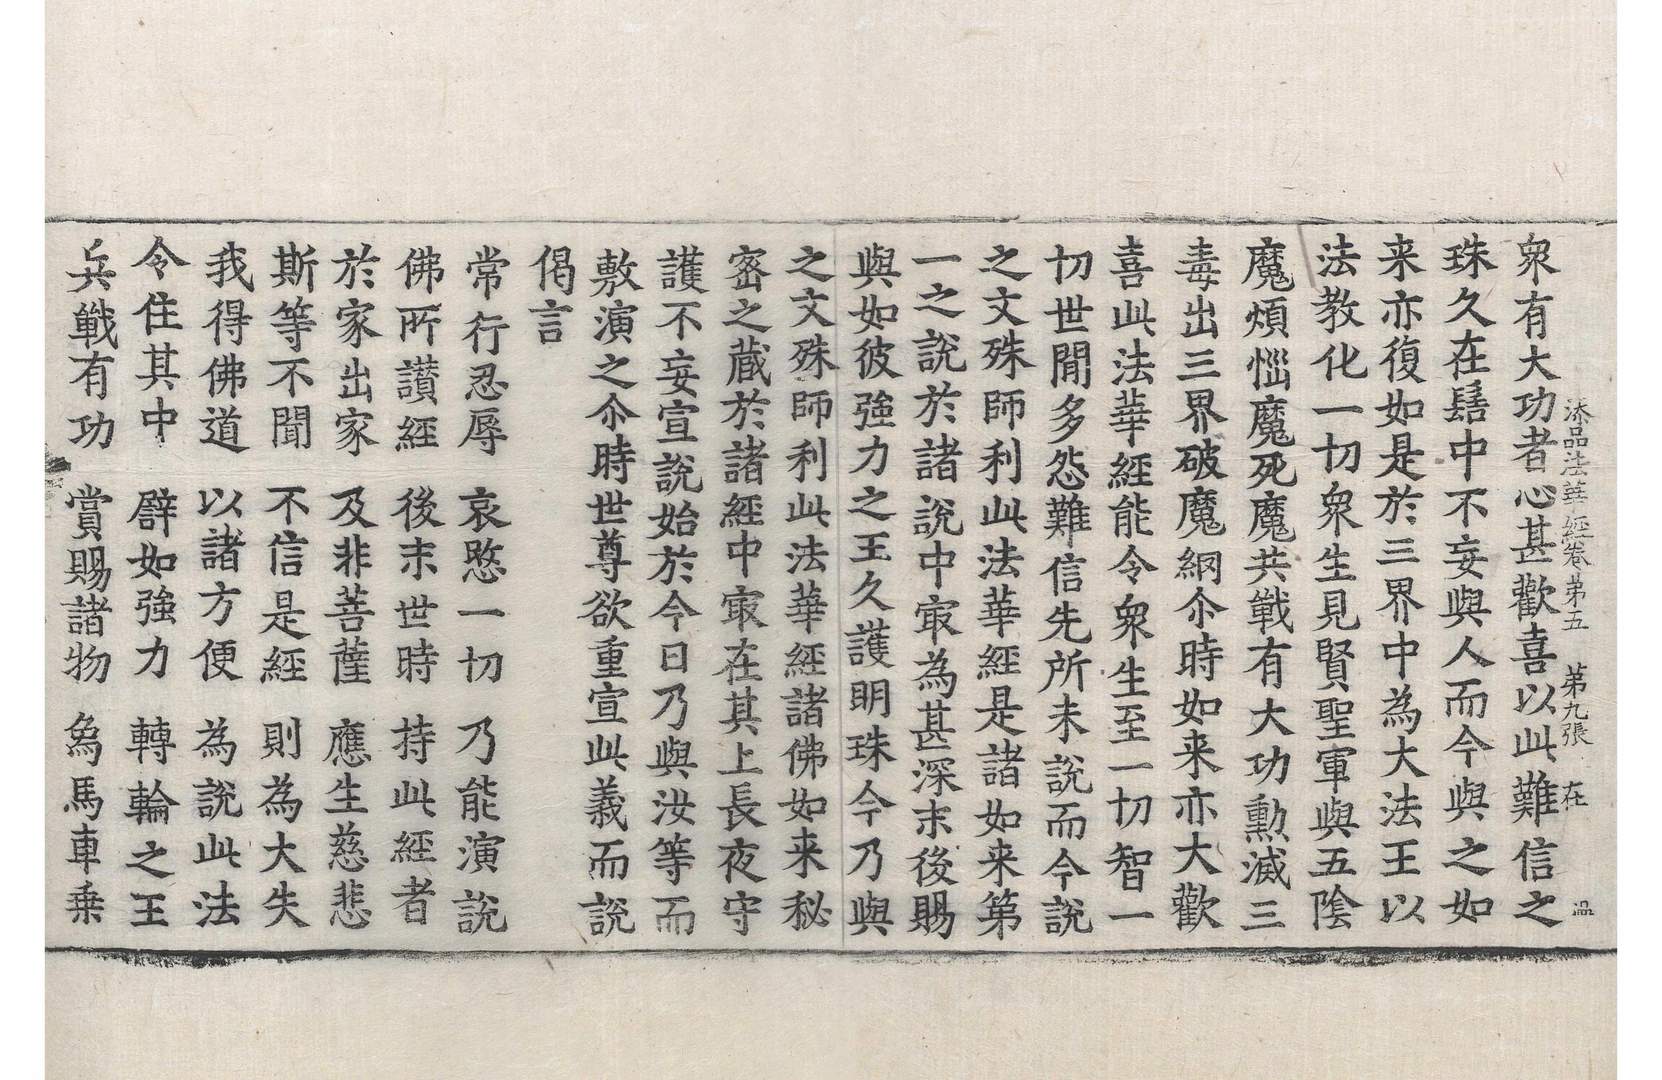 添品法華經卷第五　第九張　在　温
衆有大功者心甚歡喜以此難信之
珠久在髻中不妄與人而今與之如
来亦復如是於三界中為大法王以
法教化一切衆生見賢聖軍與五陰
魔煩惱魔死魔共戰有大功勳滅三
毒出三界破魔網尒時如来亦大歡
喜此法華經能令衆生至一切智一
切世間多怨難信先所未說而今說
之文殊師利此法華經是諸如来第
一之說於諸說中冣為甚深末後賜
與如彼強力之王久護明珠今乃與
之文殊師利此法華經諸佛如来秘
密之藏於諸經中冣在其上長夜守
護不妄宣說始於今日乃與汝等而
敷演之尒時世尊欲重宣此義而說
偈言
常行忍辱　哀愍一切　乃能演說
佛所讃經　後末世時　持此經者
於家出家　及非菩薩　應生慈悲
斯等不聞　不信是經　則為大失
我得佛道　以諸方便　為說此法
令住其中　譬如強力　轉輪之王
兵戰有功　賞賜諸物　象馬車乗